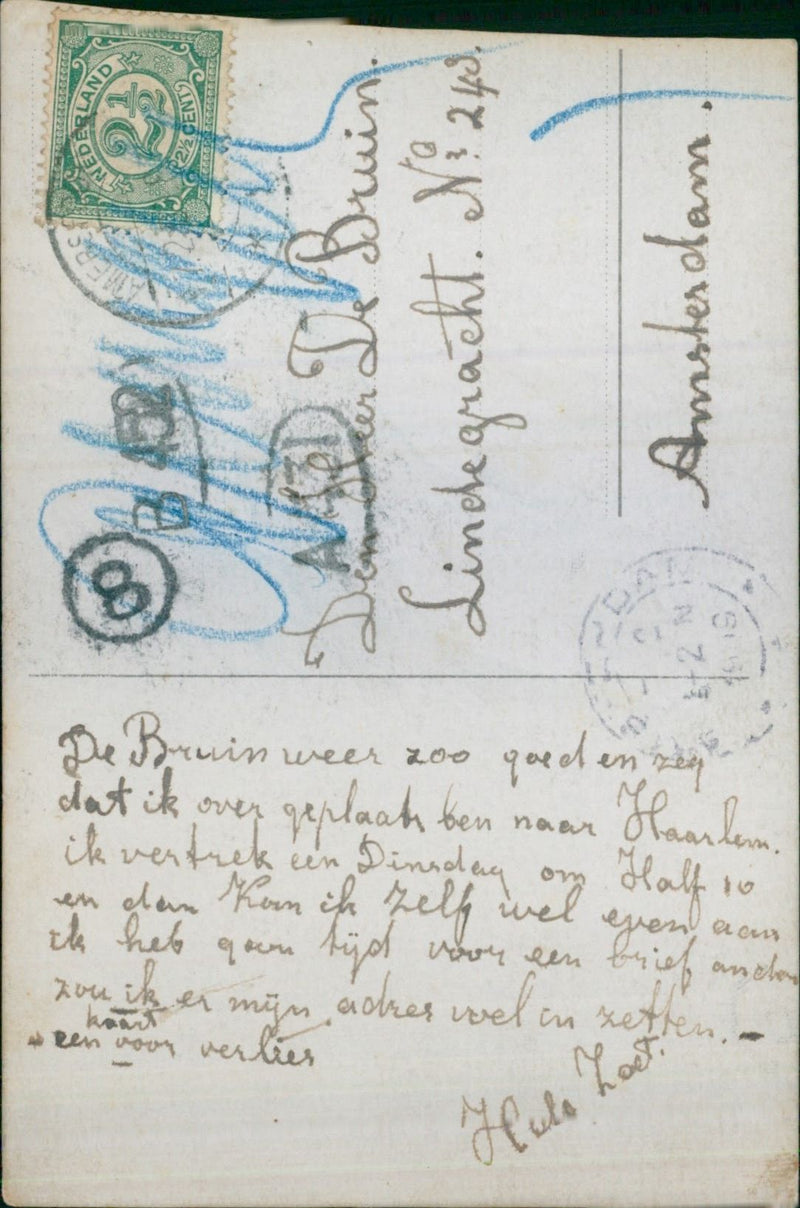 NEDERLAND
2½
2½ CENT
AMERS
8
B 432
A 431
Den Heer De Bruin.
Lindegracht. No: 243.
Amsterdam.
DAM
De Bruin weer zoo goed en zeg
dat ik over geplaats ben naar Haarlem.
ik vertrek een Dinsdag om Half 10
en dan Kan ik Zelf wel even aan
ik heb gan tijd voor een brief anders
zou ik er mijn adres wel in zetten. -
kaart
een voor verlies